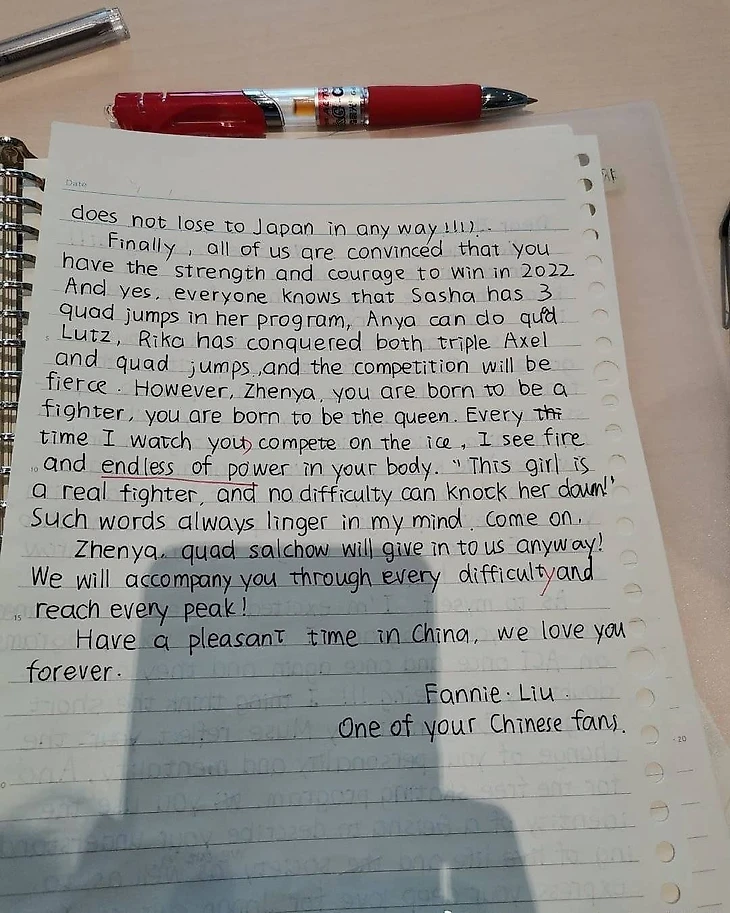 Date
does not lose to Japan in any way!!!!..
Finally, all of us are convinced that you
have the strength and courage to win in 2022
And yes, everyone knows that Sasha has 3
quad jumps in her program, Anya can do quad
Lutz, Rika has conquered both triple Axel
and quad jumps, and the competition will be
fierce. However, Zhenya, you are born to be a
fighter, you are born to be the queen. Every thi
time I watch you compete on the ice, I see fire
10 and endless of power in your body. "This girl is
a real fighter, and no difficulty can knock her down!"
Such words always linger in my mind. Come on,
Zhenya, quad salchow will give in to us anyway!
We will accompany you through every difficulty and
15 reach every peak!
Have a pleasant time in China, we love you
forever.
Fannie·Liu.
One of your Chinese fans.
20